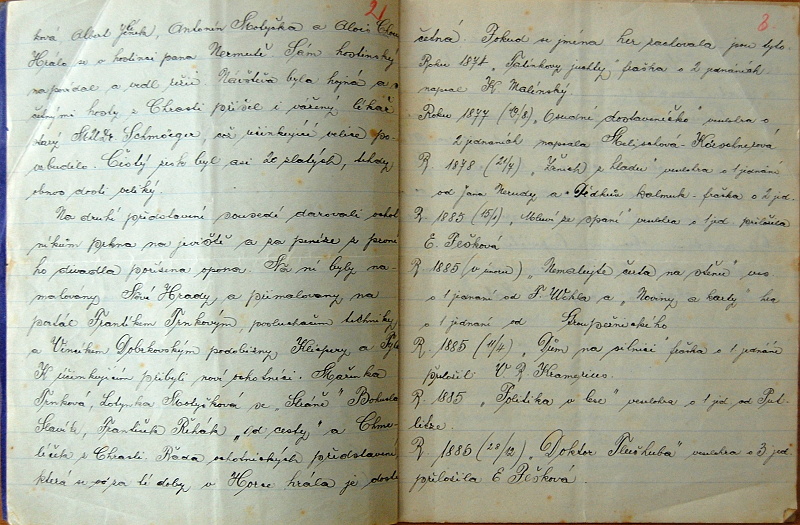 2
ková Albert Jeník, Antonín Motyčka a Alois
Hrálo se v hostinci pana Nermutě. Sám hostinský
napovídal a vedl režii. Návštěva byla hojná a s
četnými hosty z Chrasti přišel i vážený lékař
starý MUDr Schmörger, což účinkující velice po-
vzbudilo. Čistý zisk byl asi 20 zlatých, tehdy
obnos dosti veliký.
Na druhé představení sousedé darovali ochot
níkům prkna na jeviště a za peníze z prvné
ho divadla pořízena opona. Na ní byly na-
malovány Nové Hrady a přimalovány na
portál Františkem Trnkovým, posluchačem techniky,
a Vincíkem Dobrkovským podobizny Klicpery a Tyla
K účinkujícím přibyli noví ochotníci. Mařinka
Trnková, Lotynka Motyčková ze "Stráně" Bohuslav
Slavík, František Řihák "od cesty" a Chme-
líček z Chrasti. Řada ochotnických představení,
která se od té doby v Horce hrála je dosti
3
četná. Pokud se jména her zachovala jsou tyto.
Roku 1874 "Šatinkovy juchty" fraška o 2 jednáních
napsal K Malínský
Roku 1877 (19/8) "Osudné dostaveníčko" veselohra o
2 jednáních napsala
R 1878 (21/4) "Ženich z hladu" veselohra o 1 jednání
od Jana Nerudy a Dědkův kalmuk fraška o 2 jed.
R 1885 (15/2) "Mluví ze spaní" veselohra o 1 jed. přeložila
E. Pešková
R 1885 (v únoru) "Nemalujte čerta na stěnu" ves
o 1 jednání od F. Wehla a "Noviny a karty" hra
o 1 jednání od Stroupežnického
R 1885 (4/4) "Dům na silnici" fraška o 1 jednání
přeložil V R Kramerius.
R 1885 "Politika v lese" veselohra o 1 jed. od Put
litze.
R 1885 (28/12) "Doktor Pleskuba" veselohra o 3 jed
přeložila E Pešková.